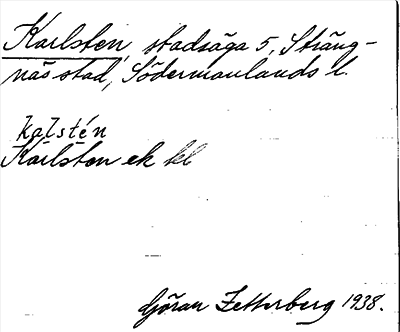 Karlsten, stadsäga 5, Sträng-
näs stad, Södermanlands l.
kalstén
Karlsten ek kl
Göran Zetterberg 1938.